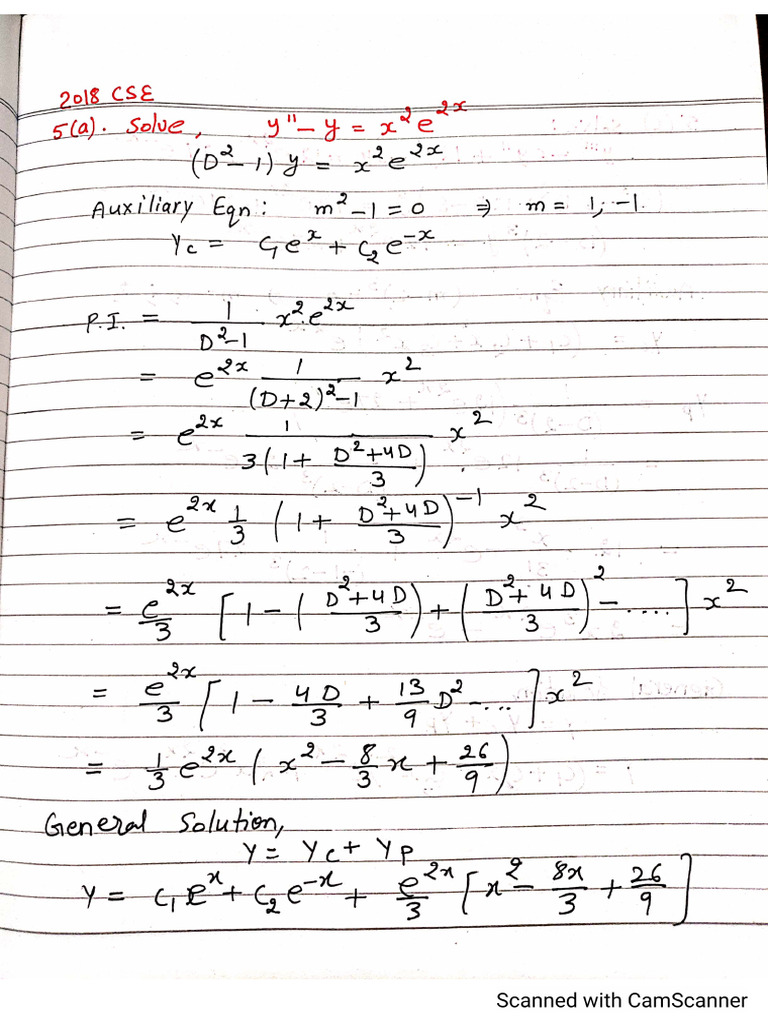 2018 CSE
5(a). Solve, y'' - y = x²e^{2x}
(D² - 1) y = x²e^{2x}
Auxiliary Eqn: m² - 1 = 0 ⇒ m = 1, -1.
Y_c = C₁e^x + C₂e^{-x}
P.I. = 1/(D² - 1) x².e^{2x}
= e^{2x} 1/((D+2)² - 1) x²
= e^{2x} 1/(3(1 + (D²+4D)/3)) x²
= e^{2x} 1/3 (1 + (D²+4D)/3)^{-1} x²
= e^{2x}/3 [1 - ((D²+4D)/3) + ((D²+4D)/3)² - ....] x²
= e^{2x}/3 [1 - 4D/3 + 13/9 D² - ....] x²
= 1/3 e^{2x} (x² - 8/3 x + 26/9)
General Solution,
Y = Y_c + Y_p
Y = C₁e^x + C₂e^{-x} + e^{2x}/3 [x² - 8x/3 + 26/9]
Scanned with CamScanner